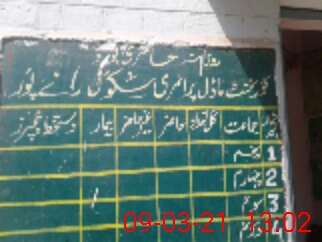 روزانہ حاضری بورڈ
گورنمنٹ ماڈل پرائمری سکول رانے پور
جماعت کل تعداد حاضر غیر حاضر بیمار دستخط ٹیچرز
1 پنجم
2 چہارم
3 سوم
09-03-21 13:02